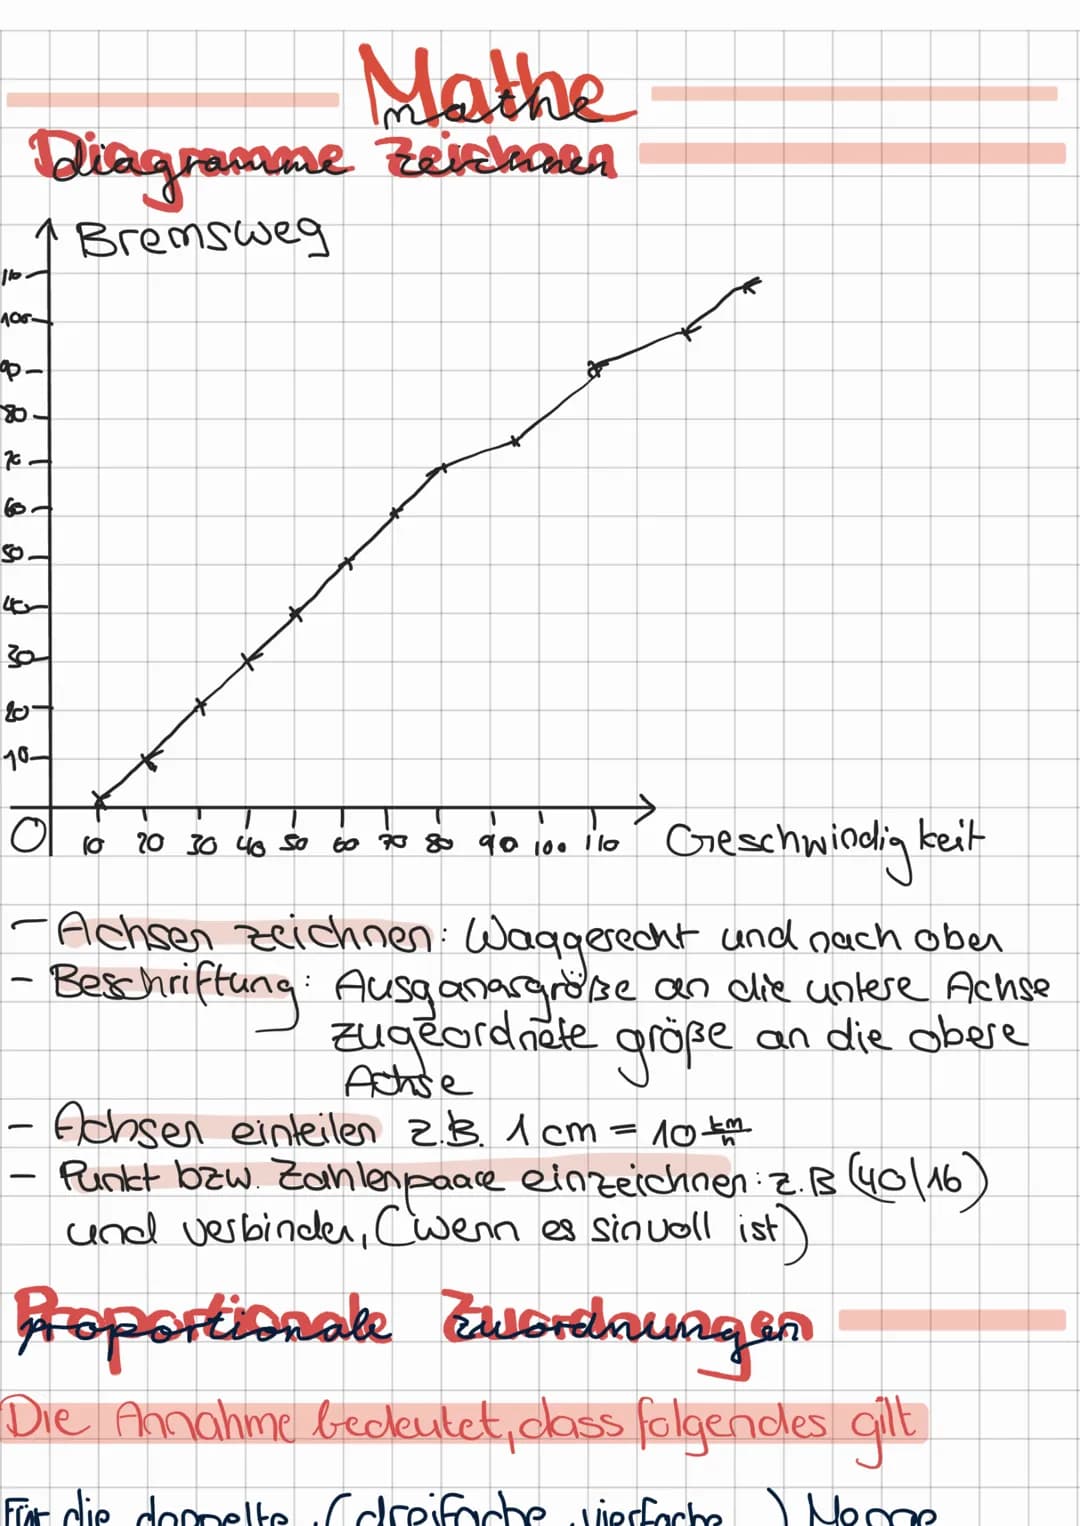 Mathe
mathe
Diagramme zeichnen
Bremsweg
110
100
90
80
70
60
50
40
30
20
10
0 10 20 30 40 50 60 70 80 90 100 110 Geschwindigkeit
- Achsen zeichnen: Waagerecht und nach oben
- Beschriftung: Ausgangsgröße an die untere Achse
zugeordnete größe an die obere
Achse
- Achsen einteilen z.B. 1 cm = 10 km/h
- Punkt bzw. Zahlenpaare einzeichnen: z.B (40|16)
und verbinden, (wenn es sinvoll ist)
Proportionale Zuordnungen
Die Annahme bedeutet, dass folgendes gilt
Für die doppelte, (dreifache, vierfache ) Menge